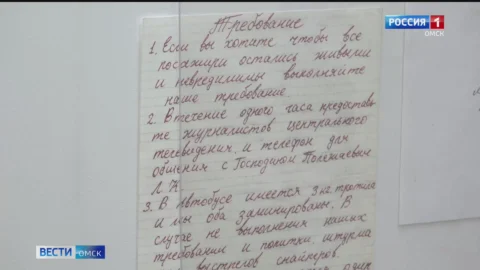 РОССИЯ 1
ОМСК
Требование
1. Если вы хотите чтобы все
посажири остались живыми
и невредимимы выполняйте
наше требование.
2. В течение одного часа предостовь
те журналистов центрального
телевидения, и телефон для
общения с Господином Полежаевым
Л. К
3. В Автобусе имеется 3 кг тротила
и мы оба заминированы. В
случае не выполнения наших
требовании и политки штурма
выстрелов снайперов.
ВЕСТИ ОМСК